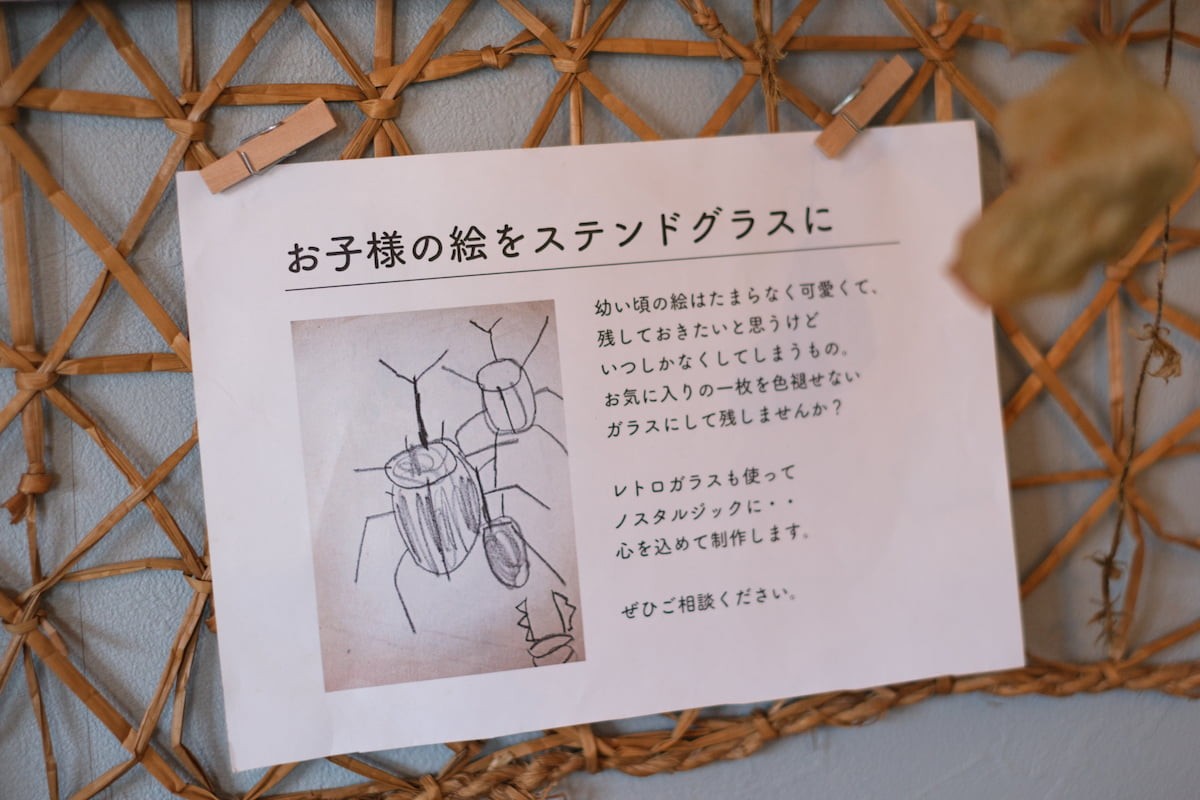 お子様の絵をステンドグラスに
幼い頃の絵はたまらなく可愛くて、
残しておきたいと思うけど
いつしかなくしてしまうもの。
お気に入りの一枚を色褪せない
ガラスにして残しませんか？
レトロガラスも使って
ノスタルジックに・・
心を込めて制作します。
ぜひご相談ください。